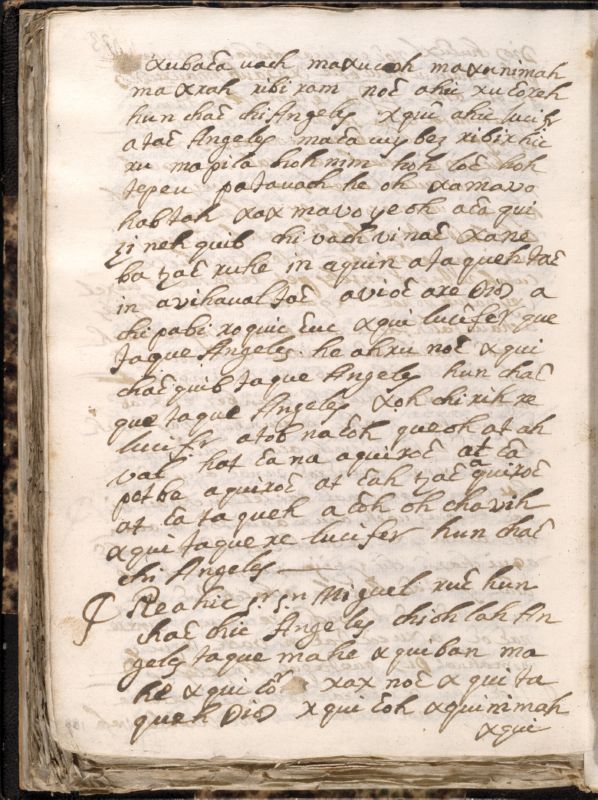 xubaća vach maxucoh maxunimah
ma xrah ribi ram noć ahic xu ćoreh
hun chać chi Angeles xqui ahic lucifer
atać Angeles maća uybez ribixhic
ru mapila hoh nim hoh loć hoh
tepeu patauach he oh xa mavo
habtah xax mavo yeoh aća qui
zineh quib chi vach vinać xane
ba tzać ruhe in aquin ataqueh tać
in avihaual tać avioć axe Dios a
chipabi roquic ćuc xqui lucifer que
taque Angeles. he ahru noć xqui
chać quib taque Angeles hun chać
que taque Angeles xoh chi rih re
lucifer atob naćoh queoh at ah
val hat ća na aquiroć at ća
pot be aquiroć at ćah tzać aquiroć
at ća taqueh aćoh oh chavih
xqui taque re lucifer hun chać
chi Angeles
Re ahic Sr. Sn Miguel ruć hun
chać chic Angeles chioh lah An
geles taque mahe xquiban ma
he xqui ćor xax noć xquita
queh Dios xqui ćoh xquinimah
xqui